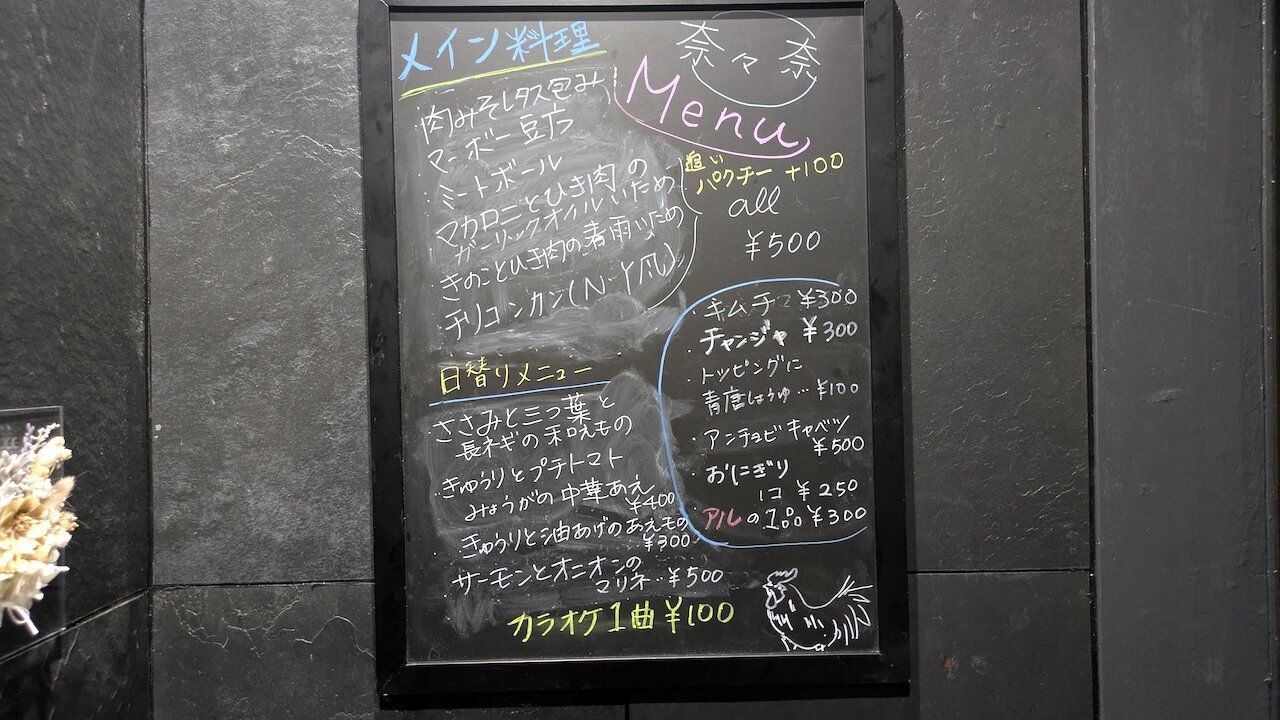 メイン料理
肉みそレタス包み
マーボー豆腐
ミートボール
マカロニとひき肉の
ガーリックオイルいため
きのことひき肉の春雨いため
チリコンカン(N.Y風)
日替りメニュー
ささみと三つ葉と
長ネギの和えもの
きゅうりとプチトマト
みょうがの中華あえ
¥400
きゅうりと油あげのあえもの
¥300
サーモンとオニオンの
マリネ‥¥500
カラオケ1曲¥100
奈々奈
Menu
追い
パクチー +100
all
¥500
・キムチ ¥300
・チャンジャ ¥300
・トッピングに
青唐しょうゆ…¥100
・アンチョビキャベツ
¥500
・おにぎり
1コ ¥250
アルの ¥300